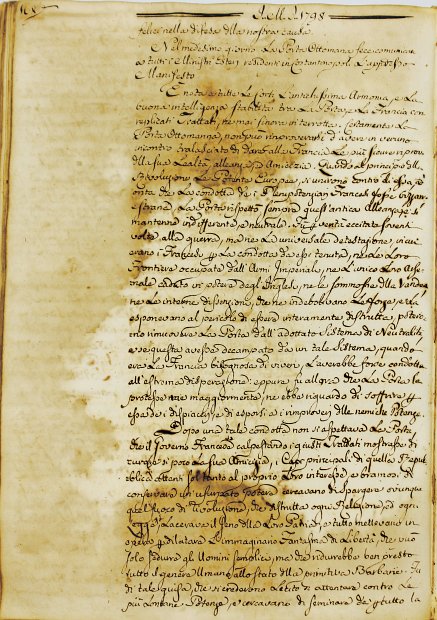 1798
felici nella difesa della nostra causa.
Nel medesimo giorno La Porta Ottomana fece comunicare
a tutti i Ministri Esteri residenti in Costantinopoli L'appresso
Manifesto
E' nota a tutte Le Corti L'antichissima Armonia, e La
buona intelligenza stabilita tra La Porta, e La Francia con
replicati Trattati, ne mai sinora interrotta. Certamente La
Porta Ottomanna, non può rimproverarsi d'avere in veruno
incontro tralasciato di dare alla Francia Le più sicure riprove
della sua Lealtà, alleanza, ed Amicizia. Quando al principio della
Rivoluzione Le Potenze Europee, si unirono contro di essa, ad
onta de La condotta de i Plenipotenziari Francesi fosse
strana, La Porta rispettò sempre quest'antica Alleanza, e si
mantenne indifferente, e neutrale. Fù questa eccitata sovente
volte alla guerra, ma ne La universale detestazione, in cui
erano i Francesi per La condotta da essi tenuta, ne le Loro
Frontiere occupate dall'Armi Imperiali, ne L'unico Loro Arse-
nale, caduto in potere degl'Inglesi, ne le sommosse della Vandea
ne Le interne dissenzioni, che ne indebolivano Le forze, e La
esponevano al pericolo di essere interamente distrutta, potero-
no rimuovere La Porta dall'adottato sistema di Neutralità
e se questa avesse decampato da un tale sistema, quando
era La Francia bisognosa di viveri, L'averebbe forse condotta
all'estrema disperazione: eppure fu allora che La Porta La
protesse maggiormente, ne ebbe riguardo di soffrire per
essa de i dispiaceri, e di esporsi a i rimproveri delle nemiche Potenze.
Dopo una tale condotta non si aspettava La Porta,
che il Governo Francese calpestando i giusti Trattati mostrasse di
curare si poco La sua Amicizia, i Capi principali di quella Repub-
blica attenti soltanto al proprio Loro interesse, e bramosi di
conservare un'usurpato potere cercavano di spargere ovunque
quel fuoco di Rivoluzione, che distrutta ogni Religione, ed ogni
Legge, Lacerava il seno della Loro Patria, e tutto mettevano in
opera per dilatare L'immaginario Fantasma di Libertà, che può
solo sedurre gli Uomini semplici, ma che ridurrebbe ben presto
tutto il genere Umano allo stato della primitiva Barbarie. Fu
di tale guisa, che si crederono Lecito di attentare contro Le
più Lontane Potenze, e cercavano di seminare da per tutto la